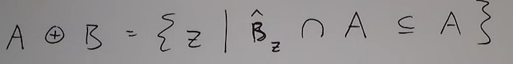 A ⊕ B = { z | B̂_z ∩ A ⊆ A }